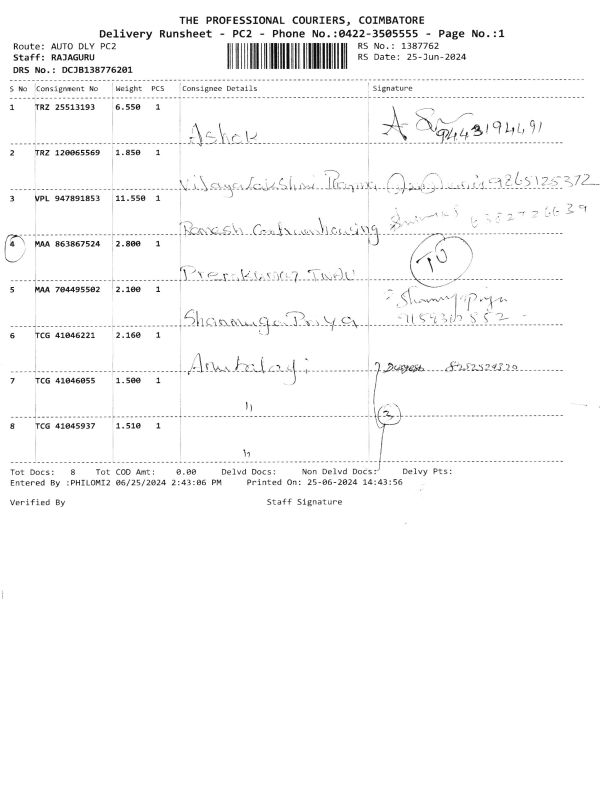 THE PROFESSIONAL COURIERS, COIMBATORE
Delivery Runsheet - PC2 - Phone No.:0422-3505555 - Page No.:1
Route: AUTO DLY PC2 RS No.: 1387762
Staff: RAJAGURU RS Date: 25-Jun-2024
DRS No.: DCJB138776201
S No Consignment No Weight PCS Consignee Details Signature
1 TRZ 25513193 6.550 1
Ashok 9443194491
2 TRZ 120065569 1.850 1
Vijayalakshmi 9865125372
3 VPL 947891853 11.550 1
Ramesh 6382726639
4 MAA 863867524 2.800 1
Premkumar TU
5 MAA 704495502 2.100 1
Shanmuga Priya Shanmugapriya
6 TCG 41046221 2.160 1
7 TCG 41046055 1.500 1
" 3
8 TCG 41045937 1.510 1
"
Tot Docs: 8 Tot COD Amt: 0.00 Delvd Docs: Non Delvd Docs: Delvy Pts:
Entered By :PHILOMI2 06/25/2024 2:43:06 PM Printed On: 25-06-2024 14:43:56
Verified By Staff Signature